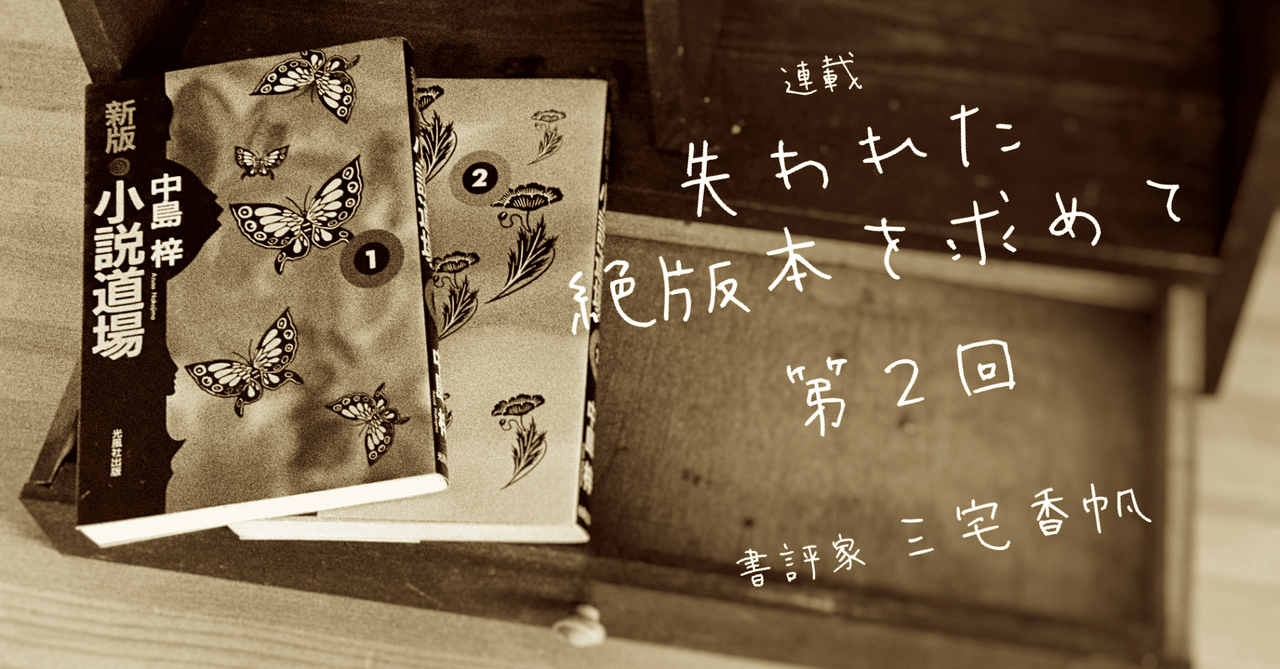 新版
小説道場
中島 梓
Azusa Nakajima
1
光風社出版
2
連載
失われた
絶版本を求めて
第2回
書評家 三宅香帆